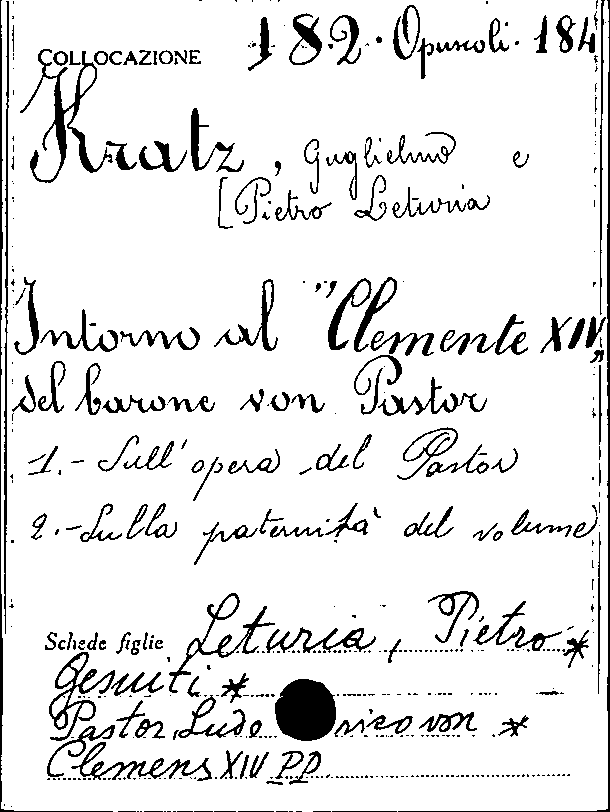 COLLOCAZIONE 182. Opuscoli. 184
Kratz, Guglielmo e
[Pietro Leturia
Intorno al "Clemente XIV"
del barone von Pastor
1.- Sull'opera del Pastor
2.- Sulla paternità del volume
Schede figlie Leturia, Pietro *
Gesuiti *
Pastor, Ludo rico von *
Clemens XIV PP.